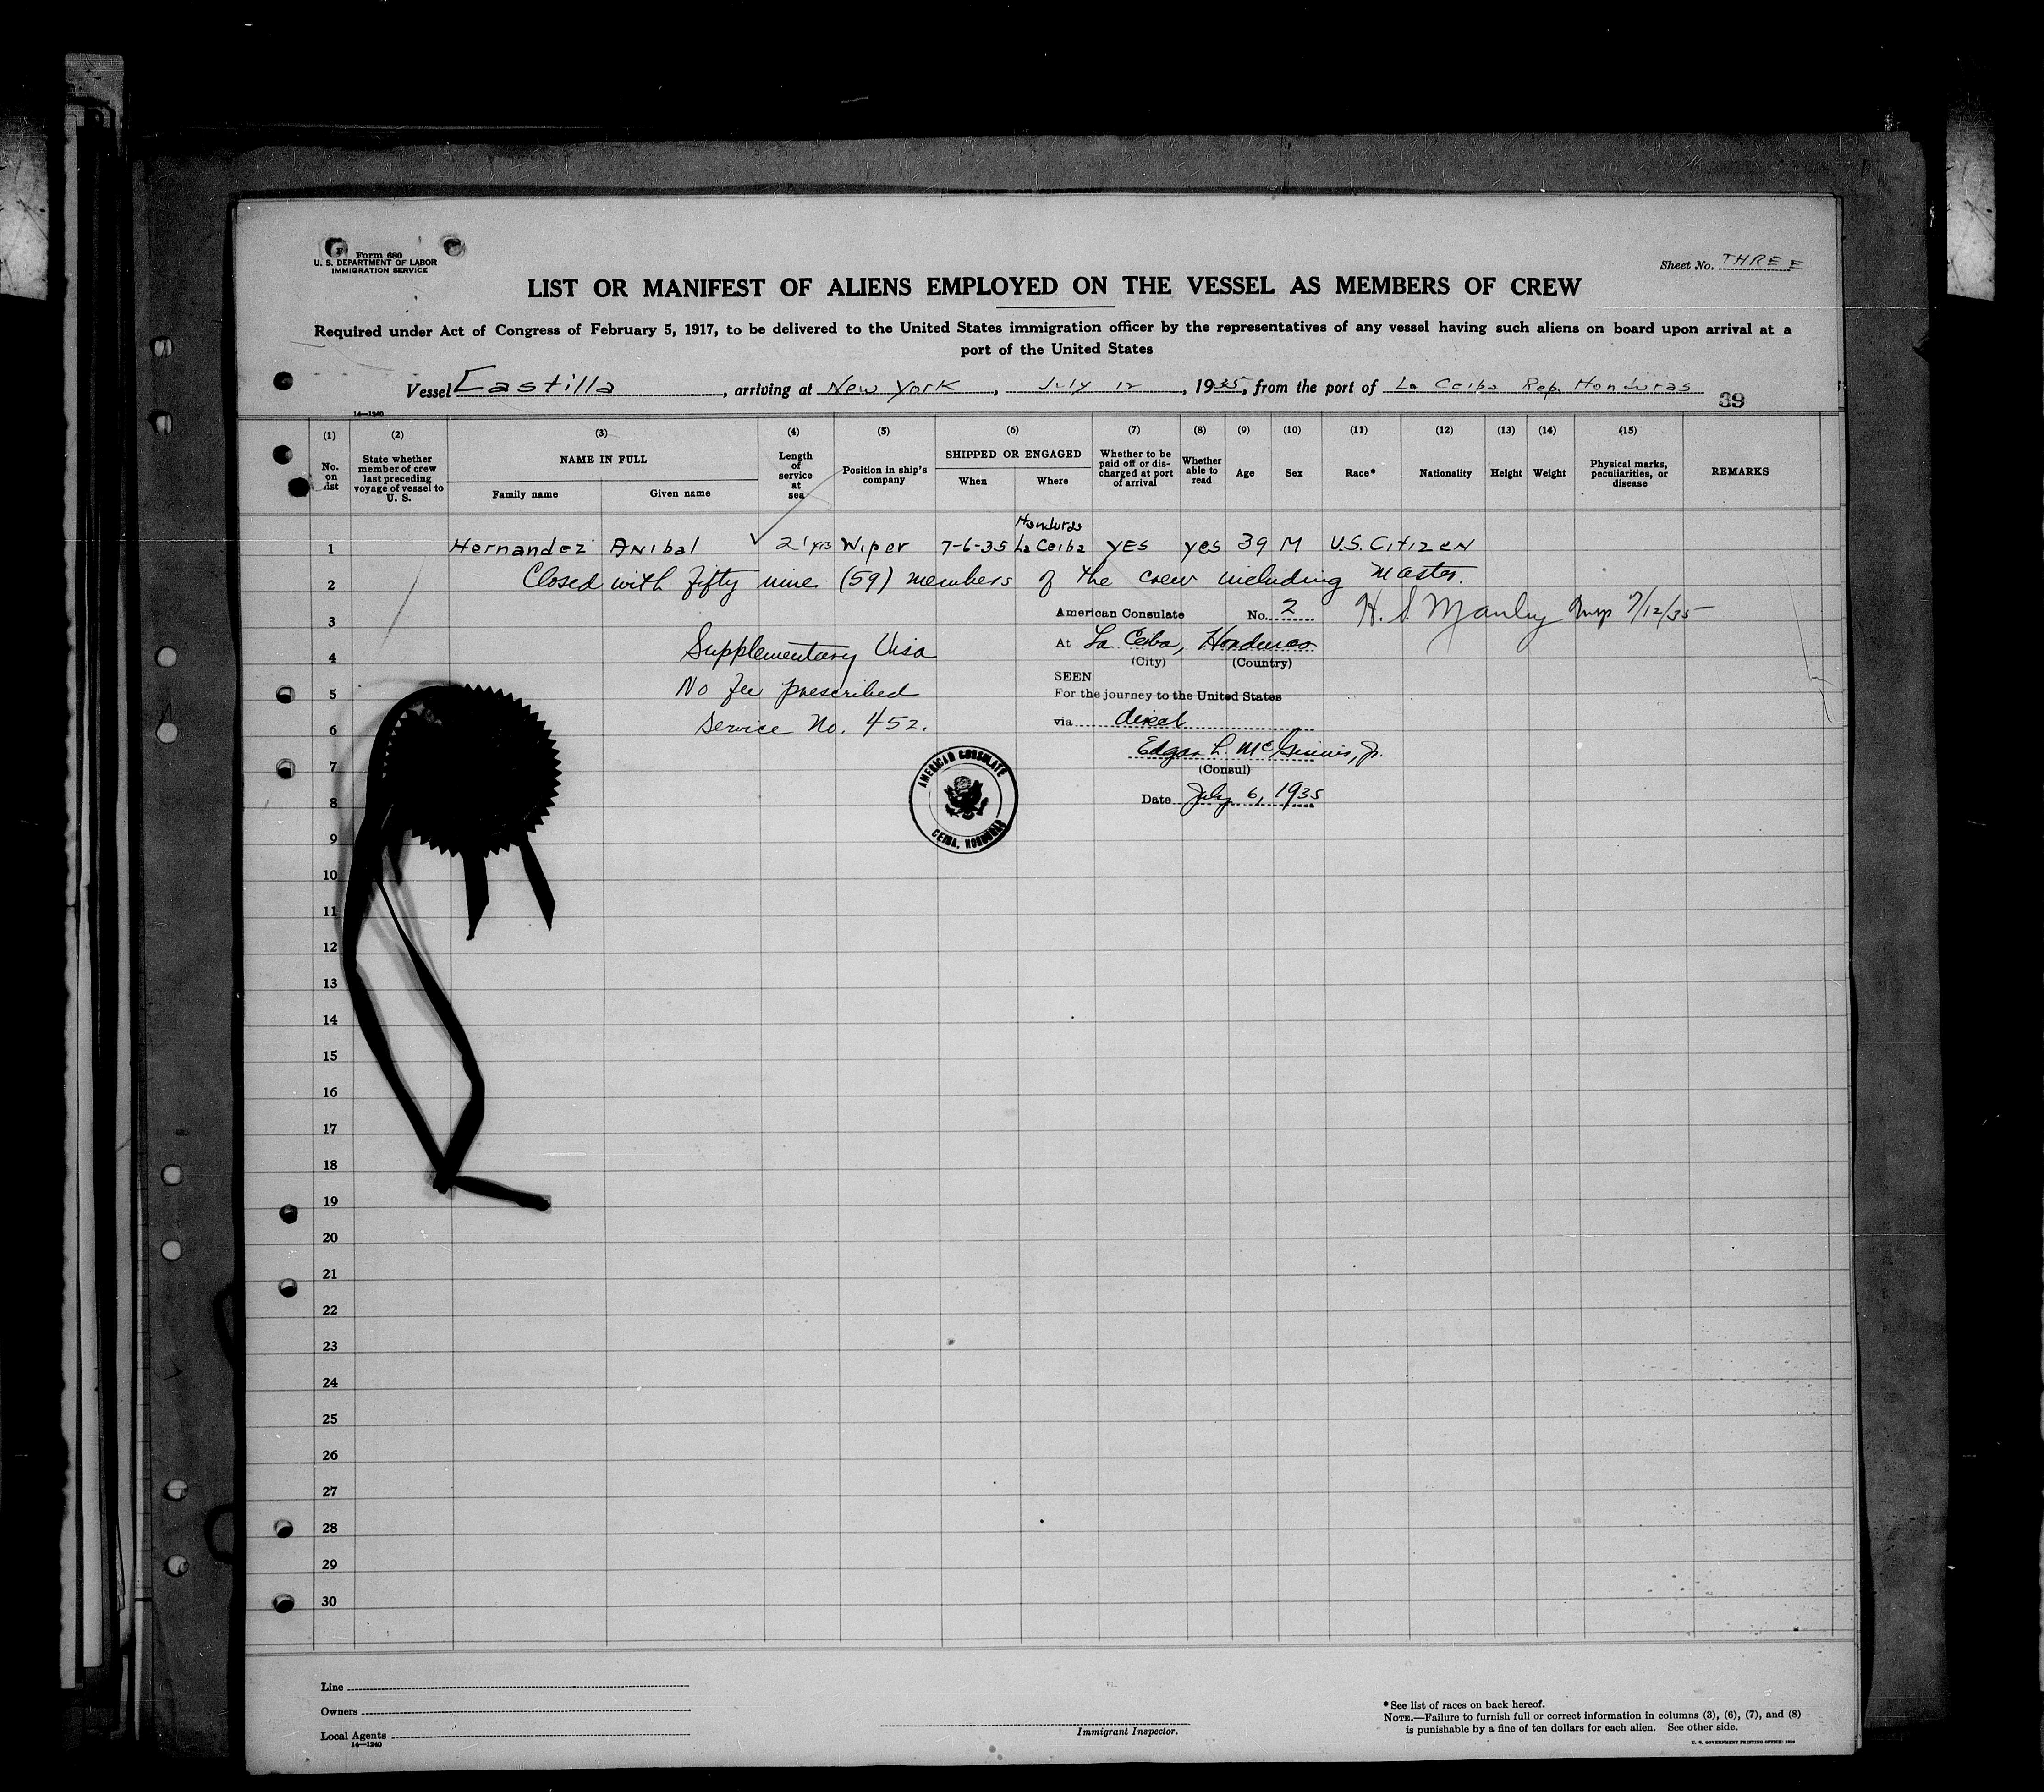 Form 680
U. S. DEPARTMENT OF LABOR
IMMIGRATION SERVICE
Sheet No. THREE
LIST OR MANIFEST OF ALIENS EMPLOYED ON THE VESSEL AS MEMBERS OF CREW
Required under Act of Congress of February 5, 1917, to be delivered to the United States immigration officer by the representatives of any vessel having such aliens on board upon arrival at a
port of the United States
Vessel Castilla, arriving at New York, July 12, 1935, from the port of La Ceiba Rep. Honduras
39
14—1240
(1) (2) (3) (4) (5) (6) (7) (8) (9) (10) (11) (12) (13) (14) (15)
No. on list
State whether member of crew last preceding voyage of vessel to U. S.
NAME IN FULL
Family name
Given name
Length of service at sea
Position in ship's company
SHIPPED OR ENGAGED
When
Where
Whether to be paid off or discharged at port of arrival
Whether able to read
Age
Sex
Race*
Nationality
Height
Weight
Physical marks, peculiarities, or disease
REMARKS
Honduras
1 Hernandez Anibal 21 yrs Wiper 7-6-35 La Ceiba YES yes 39 M U.S. Citizen
2 Closed with fifty nine (59) members of the crew including Master.
3 American Consulate No. 2 H. S. Manley Insp 7/12/35
4 Supplementary Visa At La Ceiba, Honduras
(City) (Country)
SEEN
5 No fee prescribed For the journey to the United States
6 Service No. 452. via direct
Edgar L. McGinnis, Jr.
7 (Consul)
AMERICAN CONSULATE
CEIBA, HONDURAS
8 Date July 6, 1935
9
10
11
12
13
14
15
16
17
18
19
20
21
22
23
24
25
26
27
28
29
30
Line
Owners
Local Agents
14—1240
Immigrant Inspector.
* See list of races on back hereof.
NOTE.—Failure to furnish full or correct information in columns (3), (6), (7), and (8)
is punishable by a fine of ten dollars for each alien. See other side.
U. S. GOVERNMENT PRINTING OFFICE: